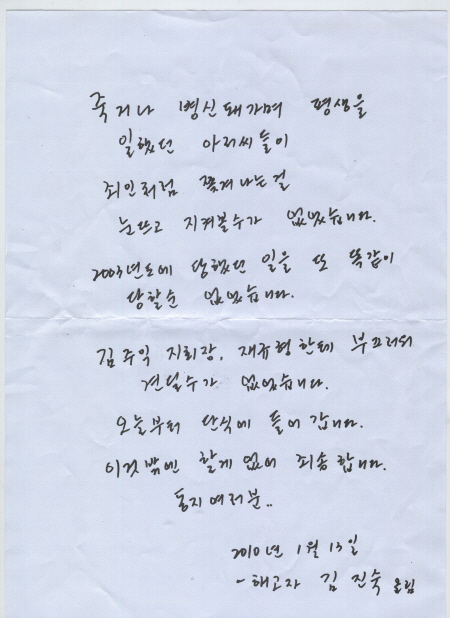 죽거나 병신돼가며 평생을
일했던 아저씨들이
죄인처럼 쫓겨나는걸
눈뜨고 지켜볼수가 없었습니다.
2003년도에 당했던 일을 또 똑같이
당할순 없었습니다.
김주익 지회장, 재규형한테 부끄러워
견딜수가 없었습니다.
오늘부터 단식에 들어 갑니다.
이것밖엔 할게없어 죄송합니다.
동지여러분..
2010년 1월 13일
-해고자 김진숙 올림